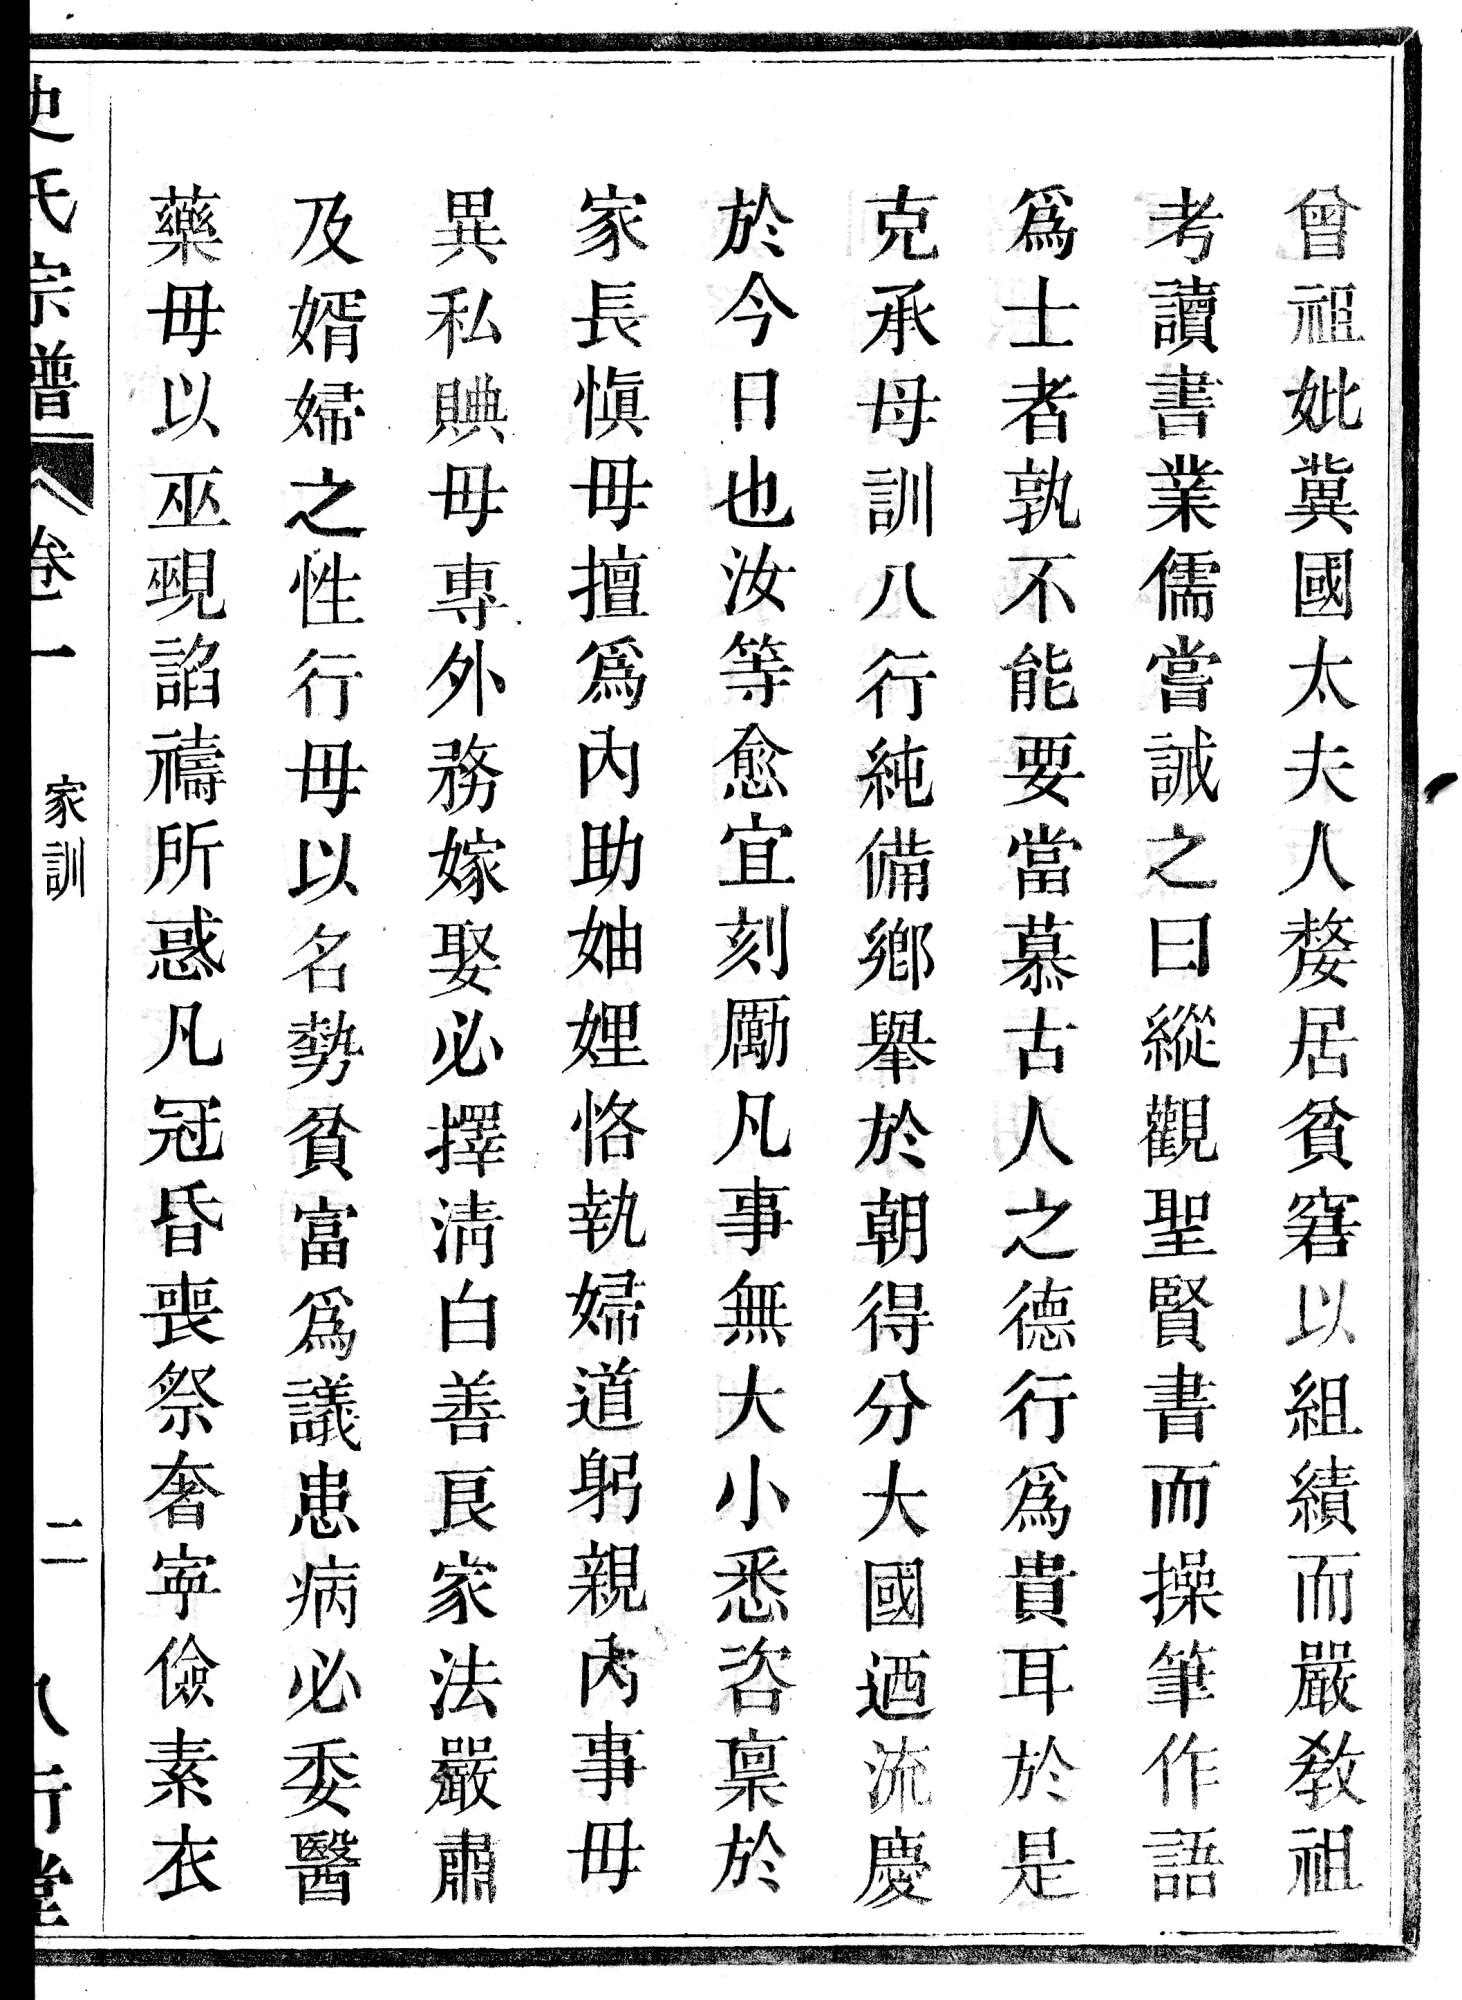 曾祖妣冀國太夫人嫠居貧窘以組績而嚴教祖
考讀書業儒嘗誡之曰縱觀聖賢書而操筆作語
爲士者孰不能要當慕古人之德行爲貴耳於是
克承母訓八行純備鄉舉於朝得分大國迺流慶
於今日也汝等愈宜刻勵凡事無大小悉咨禀於
家長愼毋擅爲內助妯娌恪執婦道躬親內事毋
異私賟毋專外務嫁娶必擇淸白善良家法嚴肅
及婿婦之性行毋以名勢貧富爲議患病必委醫
藥毋以巫覡諂禱所惑凡冠昏喪祭奢寍儉素衣
史氏宗譜 卷一 家訓 二 八行堂